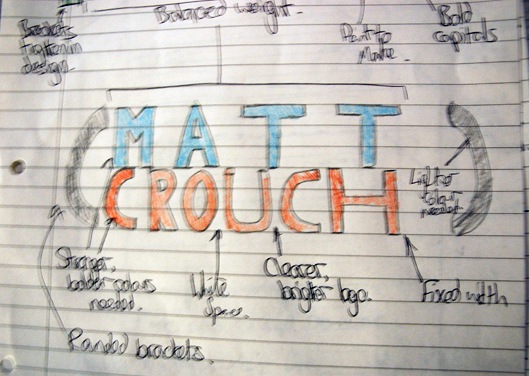 Brackets
tighten in
design.
Balanced weight.
Point to
Bold
capitals
MATT
CROUCH
Lighter
colour
needed.
Stronger,
bolder colours
needed.
White
Space.
Clearer,
brighter logo.
Fixed width
Rounded brackets.